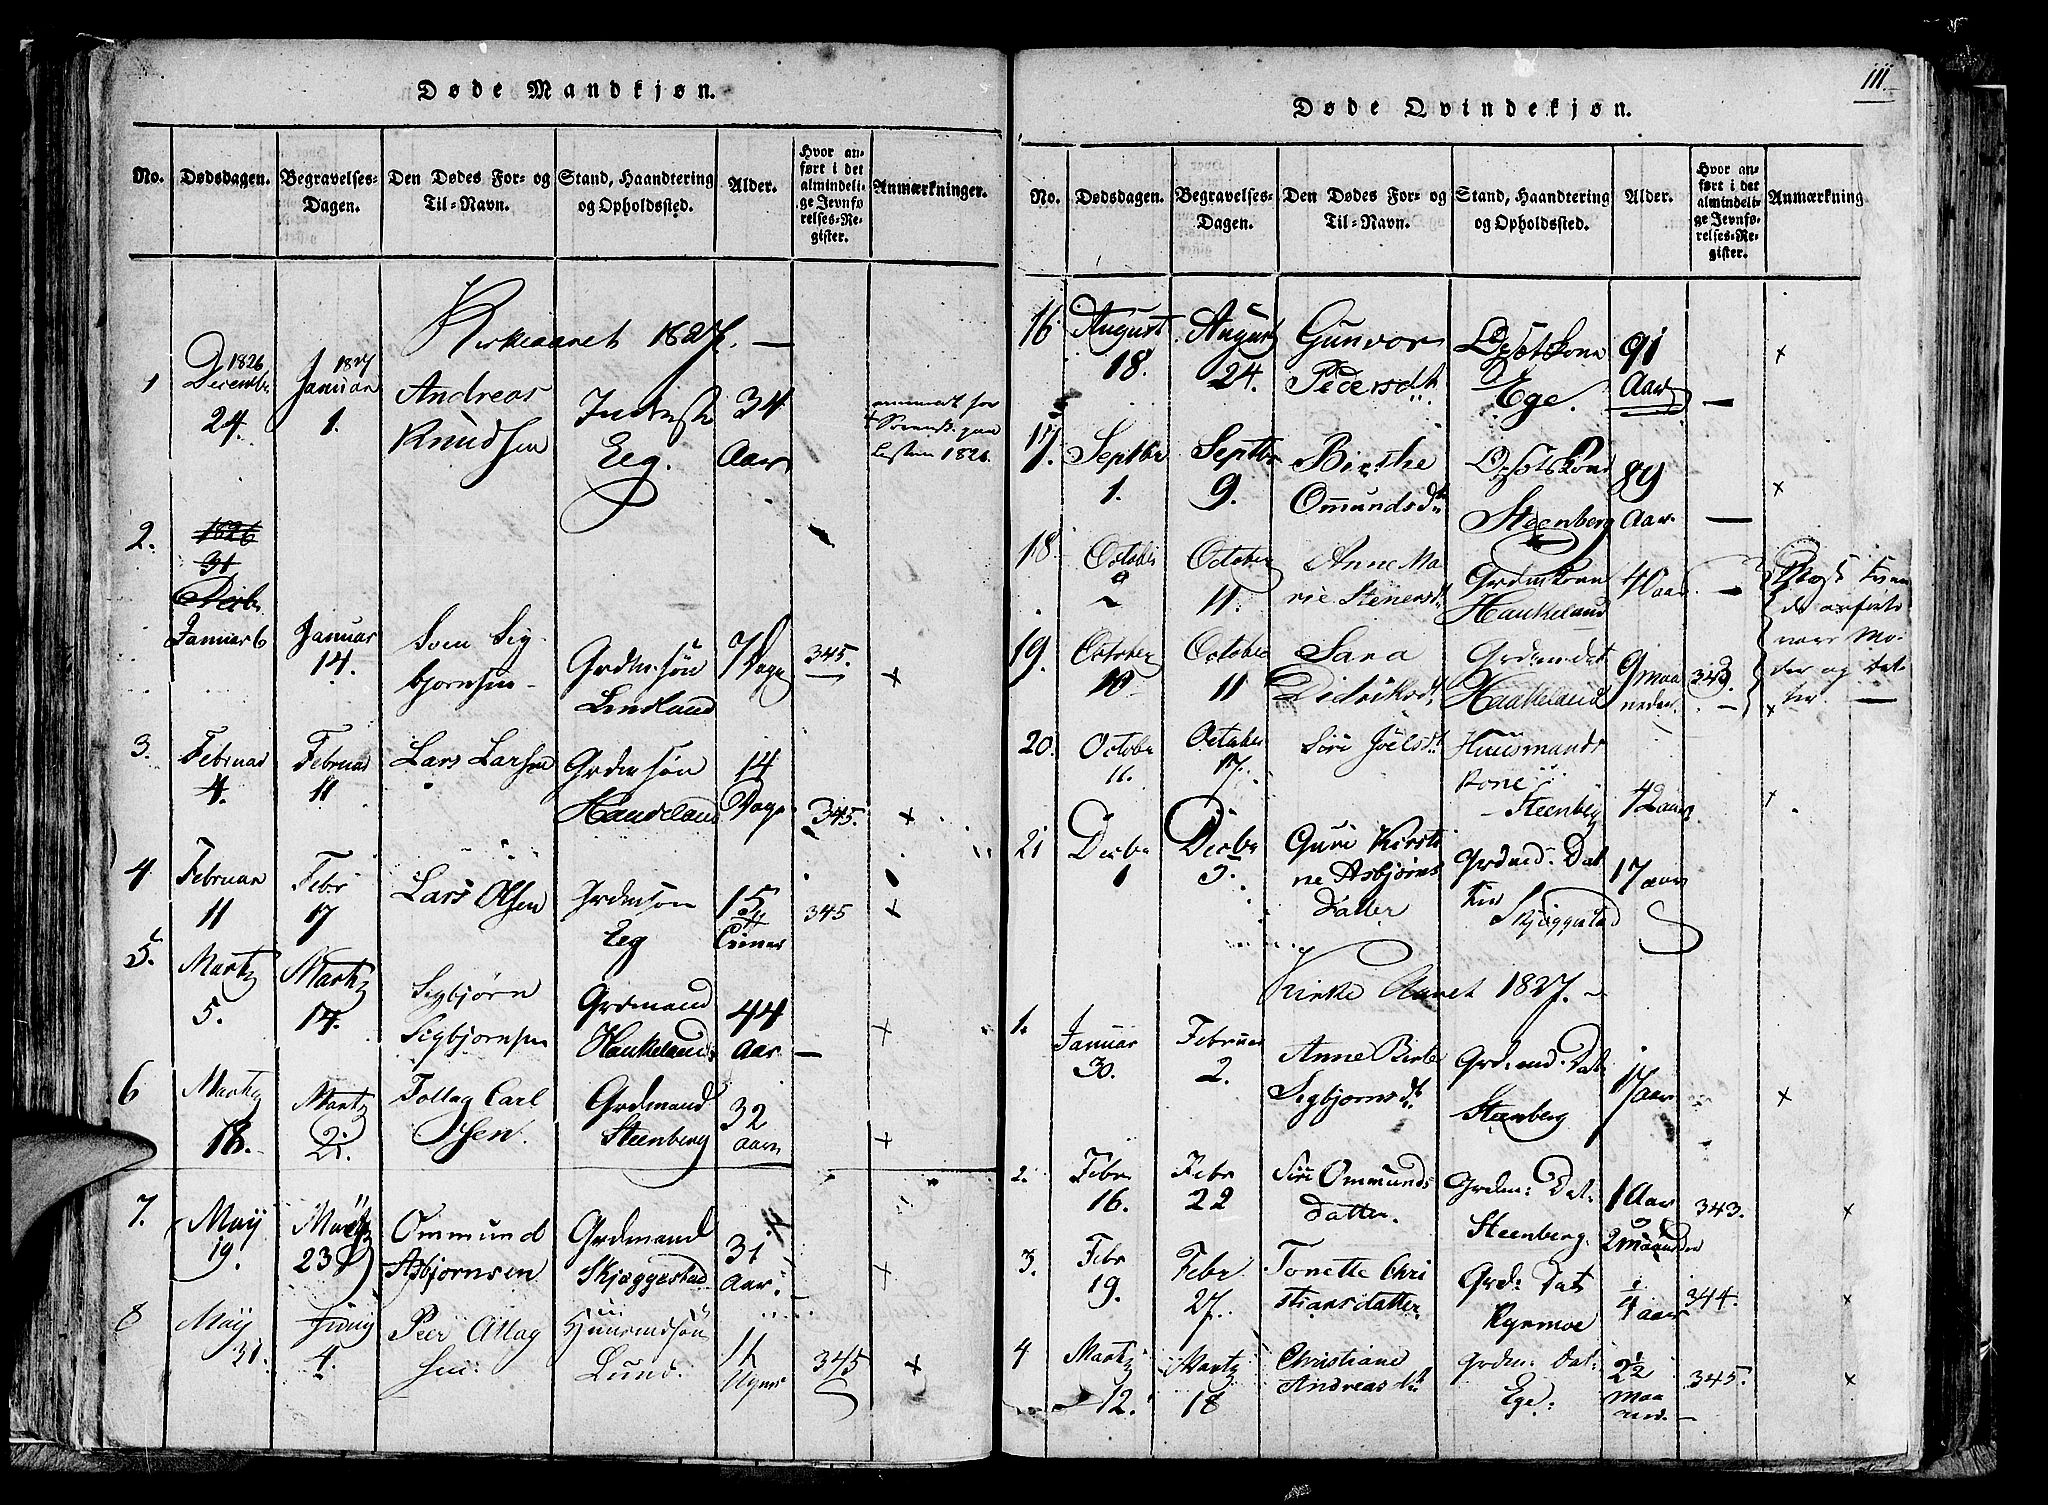 Døde Mandkjøn.
No. Dødsdagen. Begravelses-Dagen. Den Dødes For- og Til-Navn. Stand, Haandtering og Opholdssted. Alder. Hvor anført i det almindelige Jevnførelses-Register. Anmærkninger.
Kirkeaaret 1827. —
1 1826 Decembr 24. 1827 Januar 1. Andreas Knudsen Eeg. 34 Aar
Listen 1826.
2. 1826 31 Decbr. Januar 6 Januar 14. Sigbjørnsen Grdm. søn Lindland 7 Dage 345. +
3. Februar 4. Februar 11 Lars Larsen Grdm søn Haukeland 14 Dage 345. +
4 Februar 11 Febr 17 Lars Olsen Grdm søn Eeg 15 345 +
5. Martz 5. Martz 14. Sigbjørn Sigbjørnsen Grdmand Haukeland 44 Aar — +
6 Martz 18. Martz 21. Tollag Carlsen. Grdmand Steenberg 32 aar +
7. May 19. 23 Ommund Asbjørnsen Grdmand Skjæggestad 31 Aar. +
8 May 31. Juny 4. Peer Ollagsen Lund. 345 +
111.
Døde Qvindekjøn.
No. Dødsdagen. Begravelses-Dagen. Den Dødes For- og Til-Navn. Stand, Haandtering og Opholdssted. Alder. Hvor anført i det almindelige Jevnførelses-Register. Anmærkning
16 August 18. August 24. Gunvor Pedersdtr. Ege. 91 Aar — +
17. Septbr 1. Septbr 9. Birthe Ommundsdtr Steenberg 89 Aar. — +
18. October 9 October 11. Anne Marie Stenersdtr Haukeland 40 aar. —
19. October 10 October 11 Sara Didriksdtr Grdmm dat Haukeland 9 maaneder. 343. — +
Moder og Datter. —
20. October 11. October 17. Siri Joelsdtr Huusmands Kone Steenberg 42 aar +
21 Decbr 1 Decbr 5. Guri Kirstine Asbjørns Datter Grdmd: Dat Skjæggestad 17 aar
Kirke Aaret 1827. —
1. Januar 30. Februar 2. Anne Birte Sigbjørnsdtr Grdmd. Dat: Steenberg 17 aar +
2. Febr 16. Febr 22 Siri Ommunds Datter. Grdm: Dat: Steenberg. 1 Aar 2 maaneder 343. +
3. Febr 19. Febr 27. Tonette Christiansdatter Grd: Dat Rysmoe 1/4 aar 344. +
4 Martz 12. Martz 18 Christiane Andreasdtr Grdm: Dat: Ege: 2½ 345. +